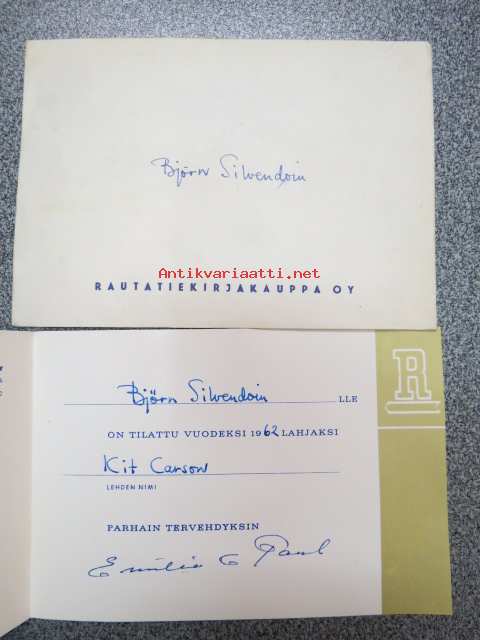 Björn Silvendoin
Antikvariaatti.net
RAUTATIEKIRJAKAUPPA OY
R
Björn Silvendoin LLE
ON TILATTU VUODEKSI 1962 LAHJAKSI
Kit Carson
LEHDEN NIMI
PARHAIN TERVEHDYKSIN
Emilie & Paul